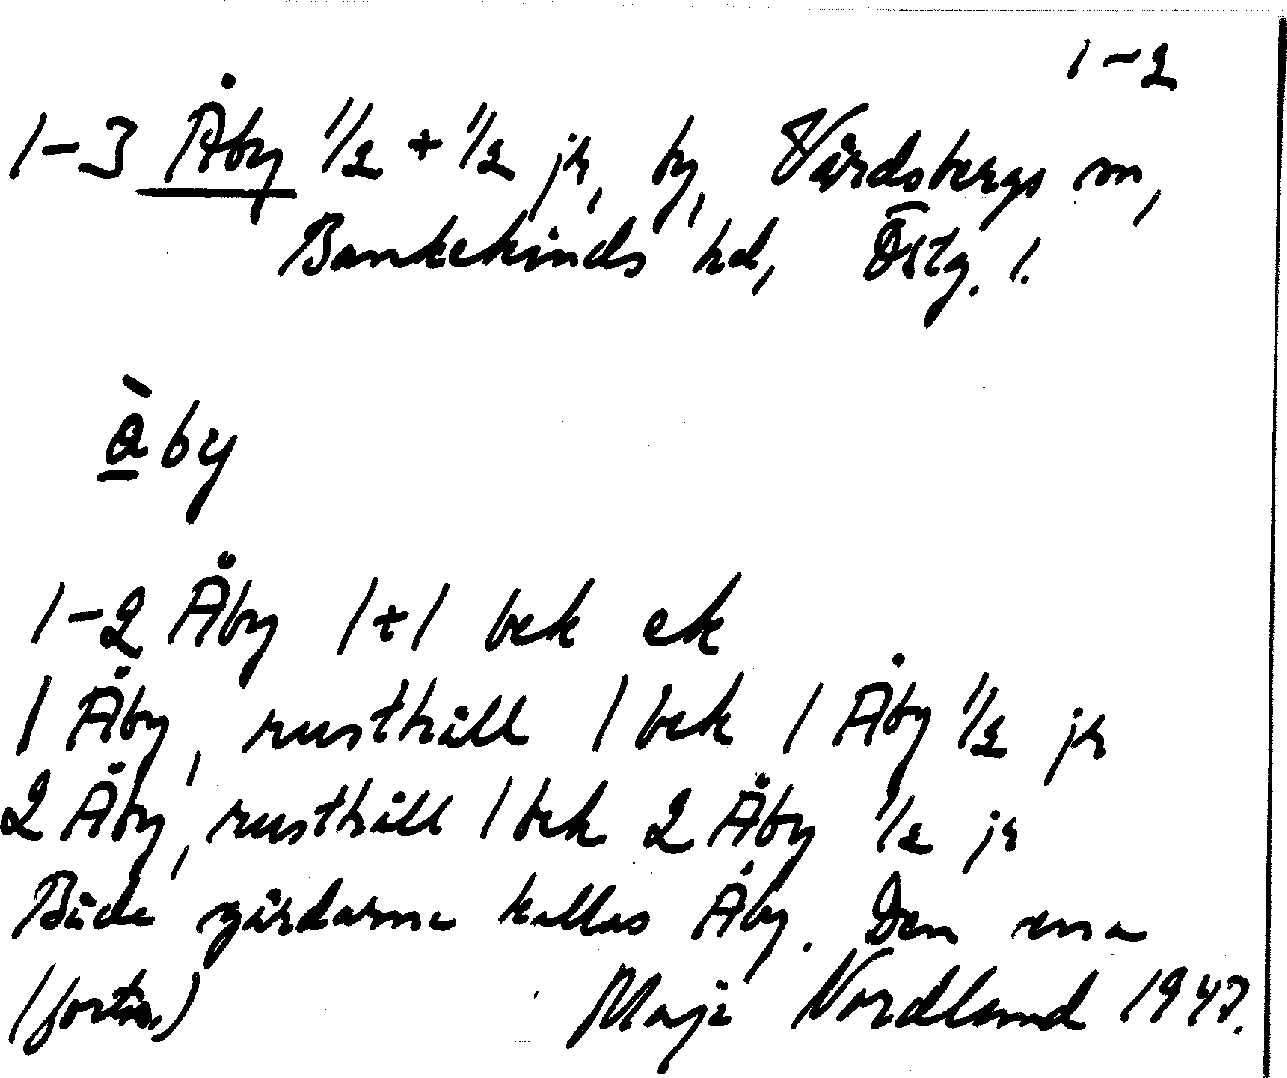 1-2
1-3 Åby 1/2 + 1/2 jr, by, Vårdsbergs sn,
Bankekinds hd, Östg. l.
å̀by
1-2 Åby 1+1 bek ek
1 Åby, rusthåll 1 bek 1 Åby 1/2 jr
2 Åby, rusthåll 1 bek 2 Åby 1/2 jr
Både gårdarna kallas Åby. Den ena
(forts.) Maja Nordland 1947.